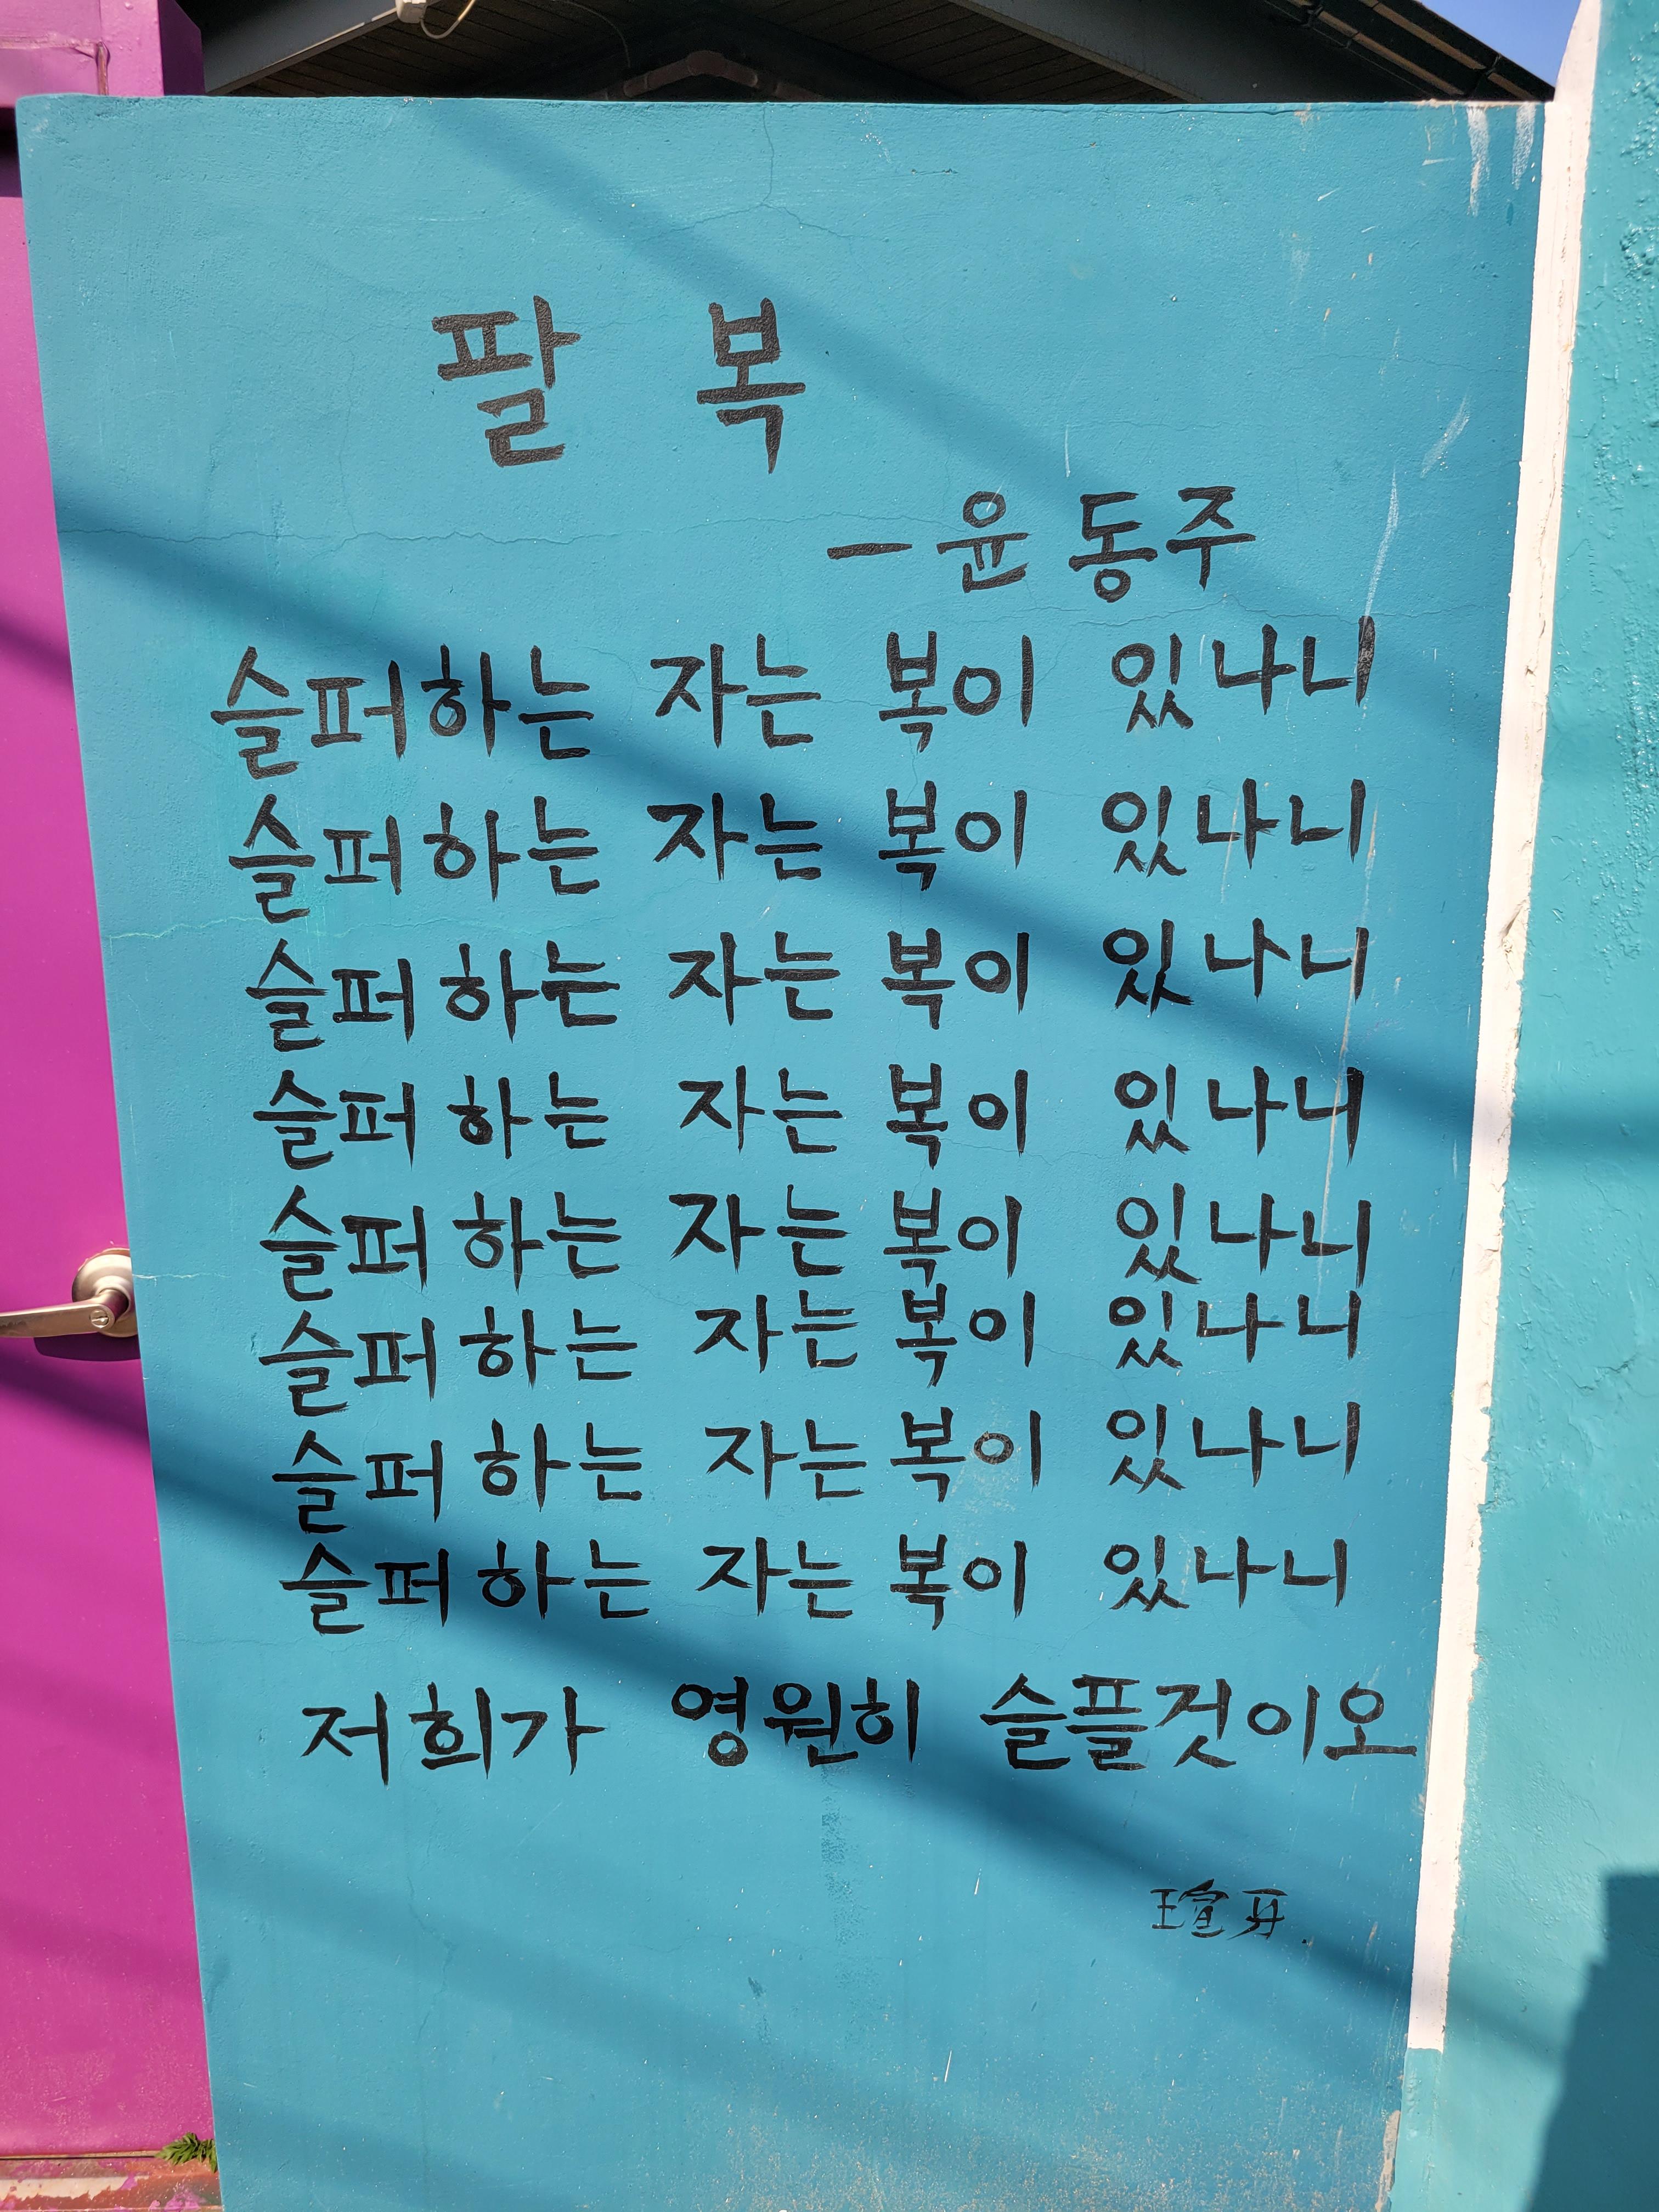 팔 복
- 윤동주
슬퍼하는 자는 복이 있나니
슬퍼하는 자는 복이 있나니
슬퍼하는 자는 복이 있나니
슬퍼하는 자는 복이 있나니
슬퍼하는 자는 복이 있나니
슬퍼하는 자는 복이 있나니
슬퍼하는 자는 복이 있나니
슬퍼하는 자는 복이 있나니
저희가 영원히 슬플것이오